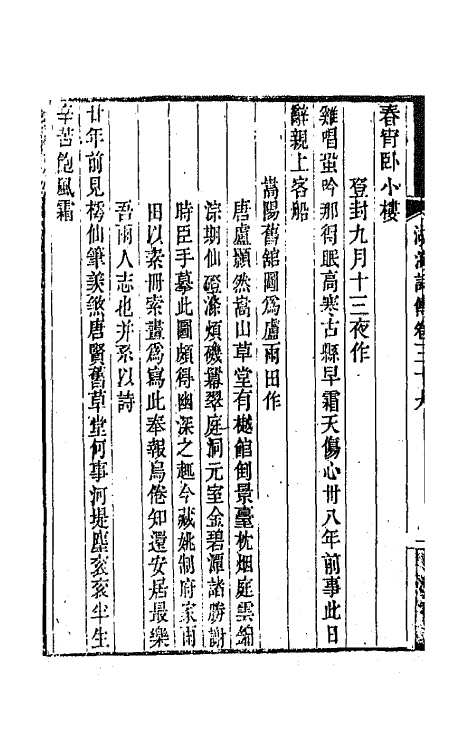 春宵臥小樓
登封九月十三夜作
雞唱蛩吟那得眠高寒古縣早霜天傷心卅八年前事此日
辭親上客船
嵩陽舊館圖為盧雨田作
唐盧顥然嵩山草堂有樾館倒景臺枕烟庭雲錦
淙期仙磴滌煩磯羃翠庭洞元室金碧潭諸勝謝
時臣手摹此圖頗得幽深之趣今藏姚制府家雨
田以素冊索畫為寫此奉報鳥倦知還安居最樂
吾兩人志也并系以詩
廿年前見樗仙筆羨煞唐賢舊草堂何事河堤塵衮衮半生
辛苦飽風霜
湖海詩傳卷三十九